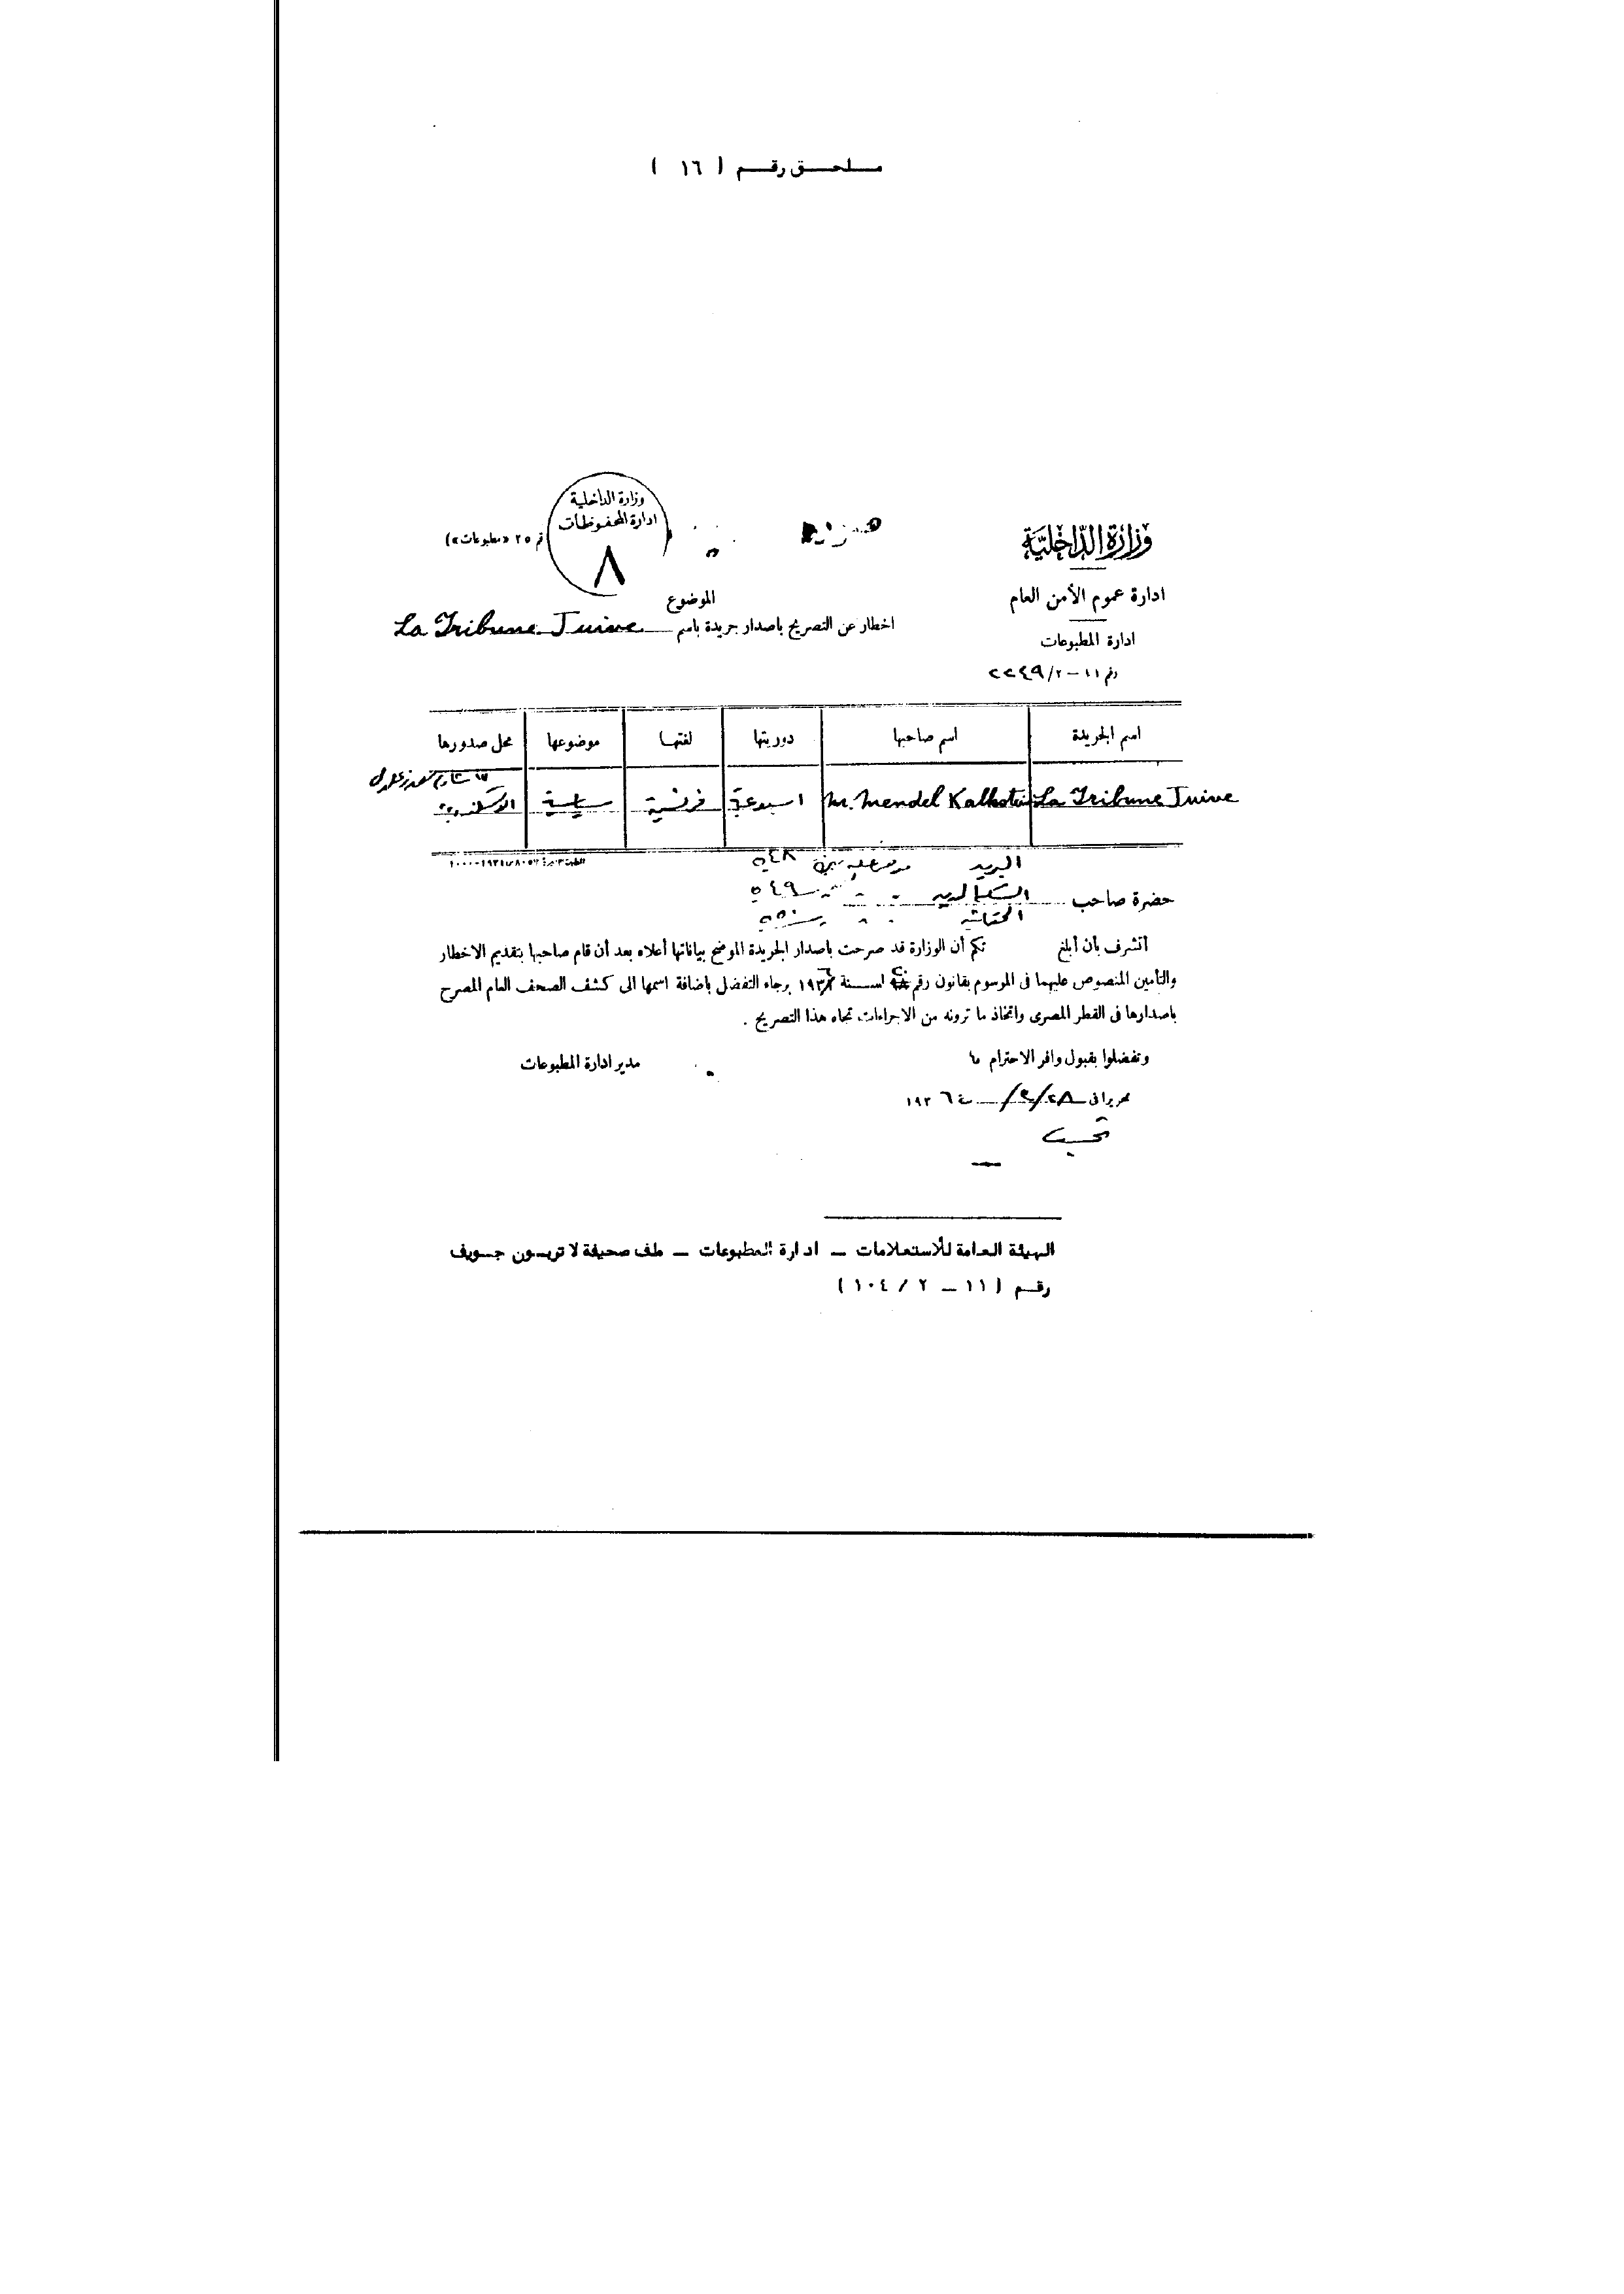 ملحق رقم ( ١٦ )
وزارة الداخلية
ادارة المحفوظات
٨
٢٥ «مطبوعات»)
وزارة الداخلية
ادارة عموم الأمن العام
ادارة المطبوعات
رقم ١١ – ٢/٢٢٤٩
الموضوع
اخطار عن التصريح باصدار جريدة باسم La Tribune Juive
اسم الجريدة اسم صاحبها دوريتها لغتها موضوعها محل صدورها
La Tribune Juive M. Mendel اسبوعية فرنسية سياسية الاسكندرية
البريد ٥٤٨
حضرة صاحب ٥٤٩
٥٥٠
أتشرف بأن أبلغ تكم أن الوزارة قد صرحت باصدار الجريدة الموضح بياناتها أعلاه بعد أن قام صاحبها بتقديم الاخطار
والتأمين المنصوص عليهما فى المرسوم بقانون رقم لسنة ١٩٣٦ برجاء التفضل باضافة اسمها الى كشف الصحف العام المصرح
باصدارها فى القطر المصرى واتخاذ ما ترونه من الاجراءات تجاه هذا التصريح .
وتفضلوا بقبول وافر الاحترام ما
مدير ادارة المطبوعات
تحريرا فى ٢٨/ / سنة ١٩٣٦
الهيئة العامة للأستعلامات – ادارة المطبوعات – ملف صحيفة لا تريبون جويف
رقم (١١ – ٢ / ١٠٤)